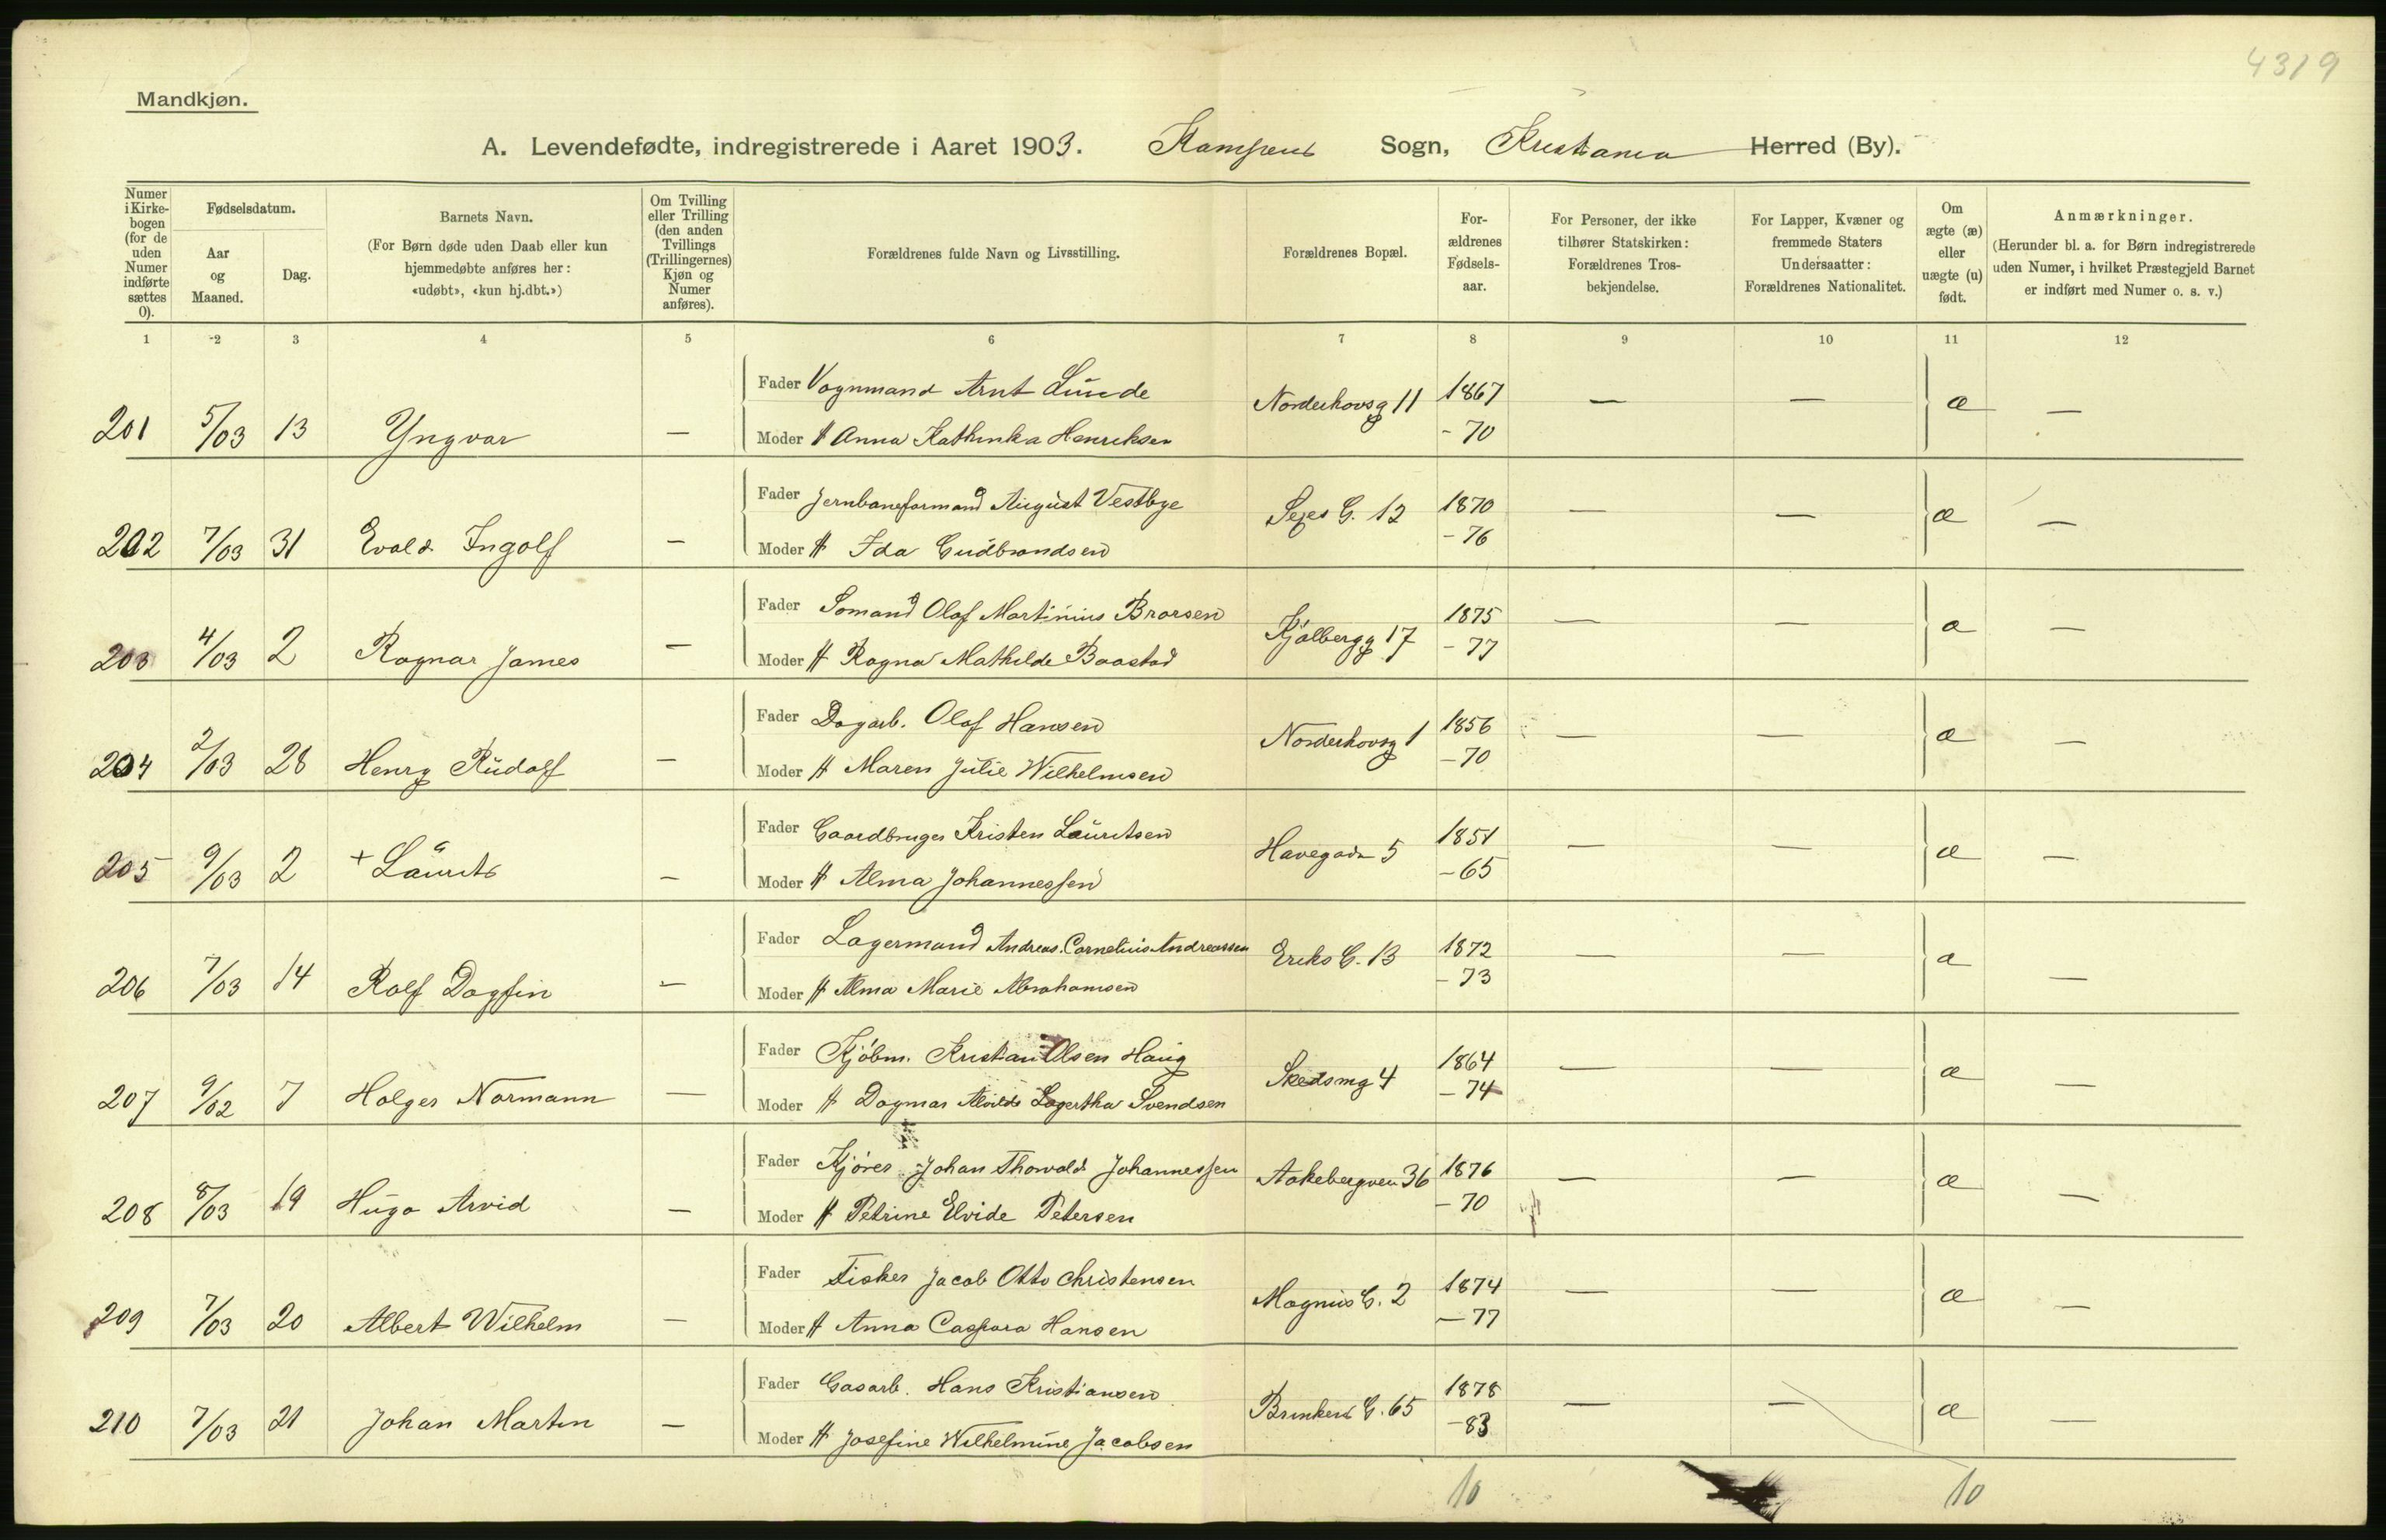 4319
Mandkjøn.
A. Levendefødte, indregistrerede i Aaret 1903. Kampens Sogn, Kristiania Herred (By).
Numer i Kirkebogen (for de uden Numer indførte sættes 0).
Fødselsdatum.
Aar og Maaned.
Dag.
Barnets Navn.
(For Børn døde uden Daab eller kun hjemmedøbte anføres her: «udøbt», «kun hj.dbt.»)
Om Tvilling eller Trilling (den anden Tvillings (Trillingernes) Kjøn og Numer anføres).
Forældrenes fulde Navn og Livsstilling.
Forældrenes Bopæl.
Forældrenes Fødselsaar.
For Personer, der ikke tilhører Statskirken: Forældrenes Trosbekjendelse.
For Lapper, Kvæner og fremmede Staters Undersaatter: Forældrenes Nationalitet.
Om ægte (æ) eller uægte (u) født.
Anmærkninger.
(Herunder bl. a. for Børn indregistrerede uden Numer, i hvilket Præstegjeld Barnet er indført med Numer o. s. v.)
1 2 3 4 5 6 7 8 9 10 11 12
Fader Vognmand Arnt Lunde 1867
201 5/03 13 Yngvar — Norderhovsg 11 — — æ —
Moder H Anna Kathinka Henriksen - 70
Fader Jernbaneformand August Vestbye 1870
202 7/03 31 Evald Ingolf — Sejes G. 12 — — æ —
Moder H Ida Gudbrandsen - 76
Fader Sømand Olaf Martinius Brorsen 1875
203 4/03 2 Ragnar James — Kjølbergg 17 — — æ —
Moder H Ragna Mathilde Baastad - 77
Fader Dagarb. Olaf Hansen 1856
204 2/03 28 Henry Rudolf — Norderhovsg 1 — — æ —
Moder H Maren Julie Wilhelmsen - 70
Fader Gaardbruger Kristen Lauritsen 1851
205 9/03 2 + Laurits — Havegaden 5 — — æ —
Moder H Alma Johannessen - 65
Fader Lagermand Andreas Cornelius Andreassen 1872
206 7/03 14 Rolf Dagfin — Eriks G. 13 — — æ —
Moder H Alma Marie Abrahamsen - 73
Fader Kjøbm. Kristian Olsen Haug 1864
207 9/02 7 Holger Normann — Skedsmg 4 — — æ —
Moder H Dagmar Alvilde Lagertha Svendsen - 74
Fader Kjører Johan Thorvald Johannessen 1876
208 8/03 19 Hugo Arvid — Aakebergveien 36 — — æ —
Moder H Petrine Elvide Petersen - 70
Fader Fisker Jacob Otto Christensen 1874
209 7/03 20 Albert Wilhelm — Magnus G. 2 — — æ —
Moder H Anna Caspara Hansen - 77
Fader Gasarb. Hans Kristiansen 1878
210 7/03 21 Johan Martin — Brinkens G. 65 — — æ —
Moder H Josefine Wilhelmine Jacobsen - 83
10 10